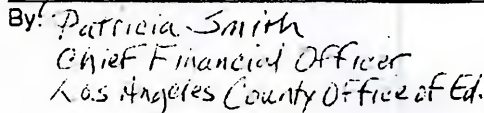 By: Patricia Smith
Chief Financial Officer
Los Angeles County Office of Ed.